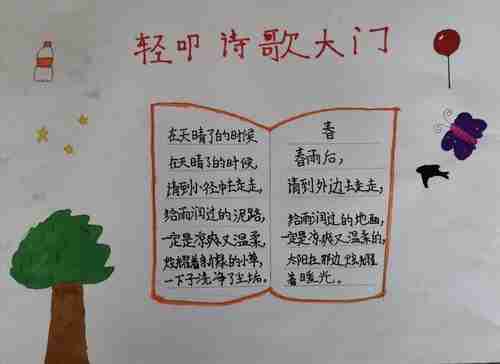 轻叩诗歌大门
在天晴了的时候
在天晴了的时候,
请到小径中去走走,
给雨润过的泥路,
一定是凉爽又温柔,
炫耀着新绿的小草,
一下子洗净了尘垢。
春
春雨后,
请到外边去走走,
给雨润过的地面,
一定是凉爽又温柔的,
太阳在那边炫耀
着暖光。